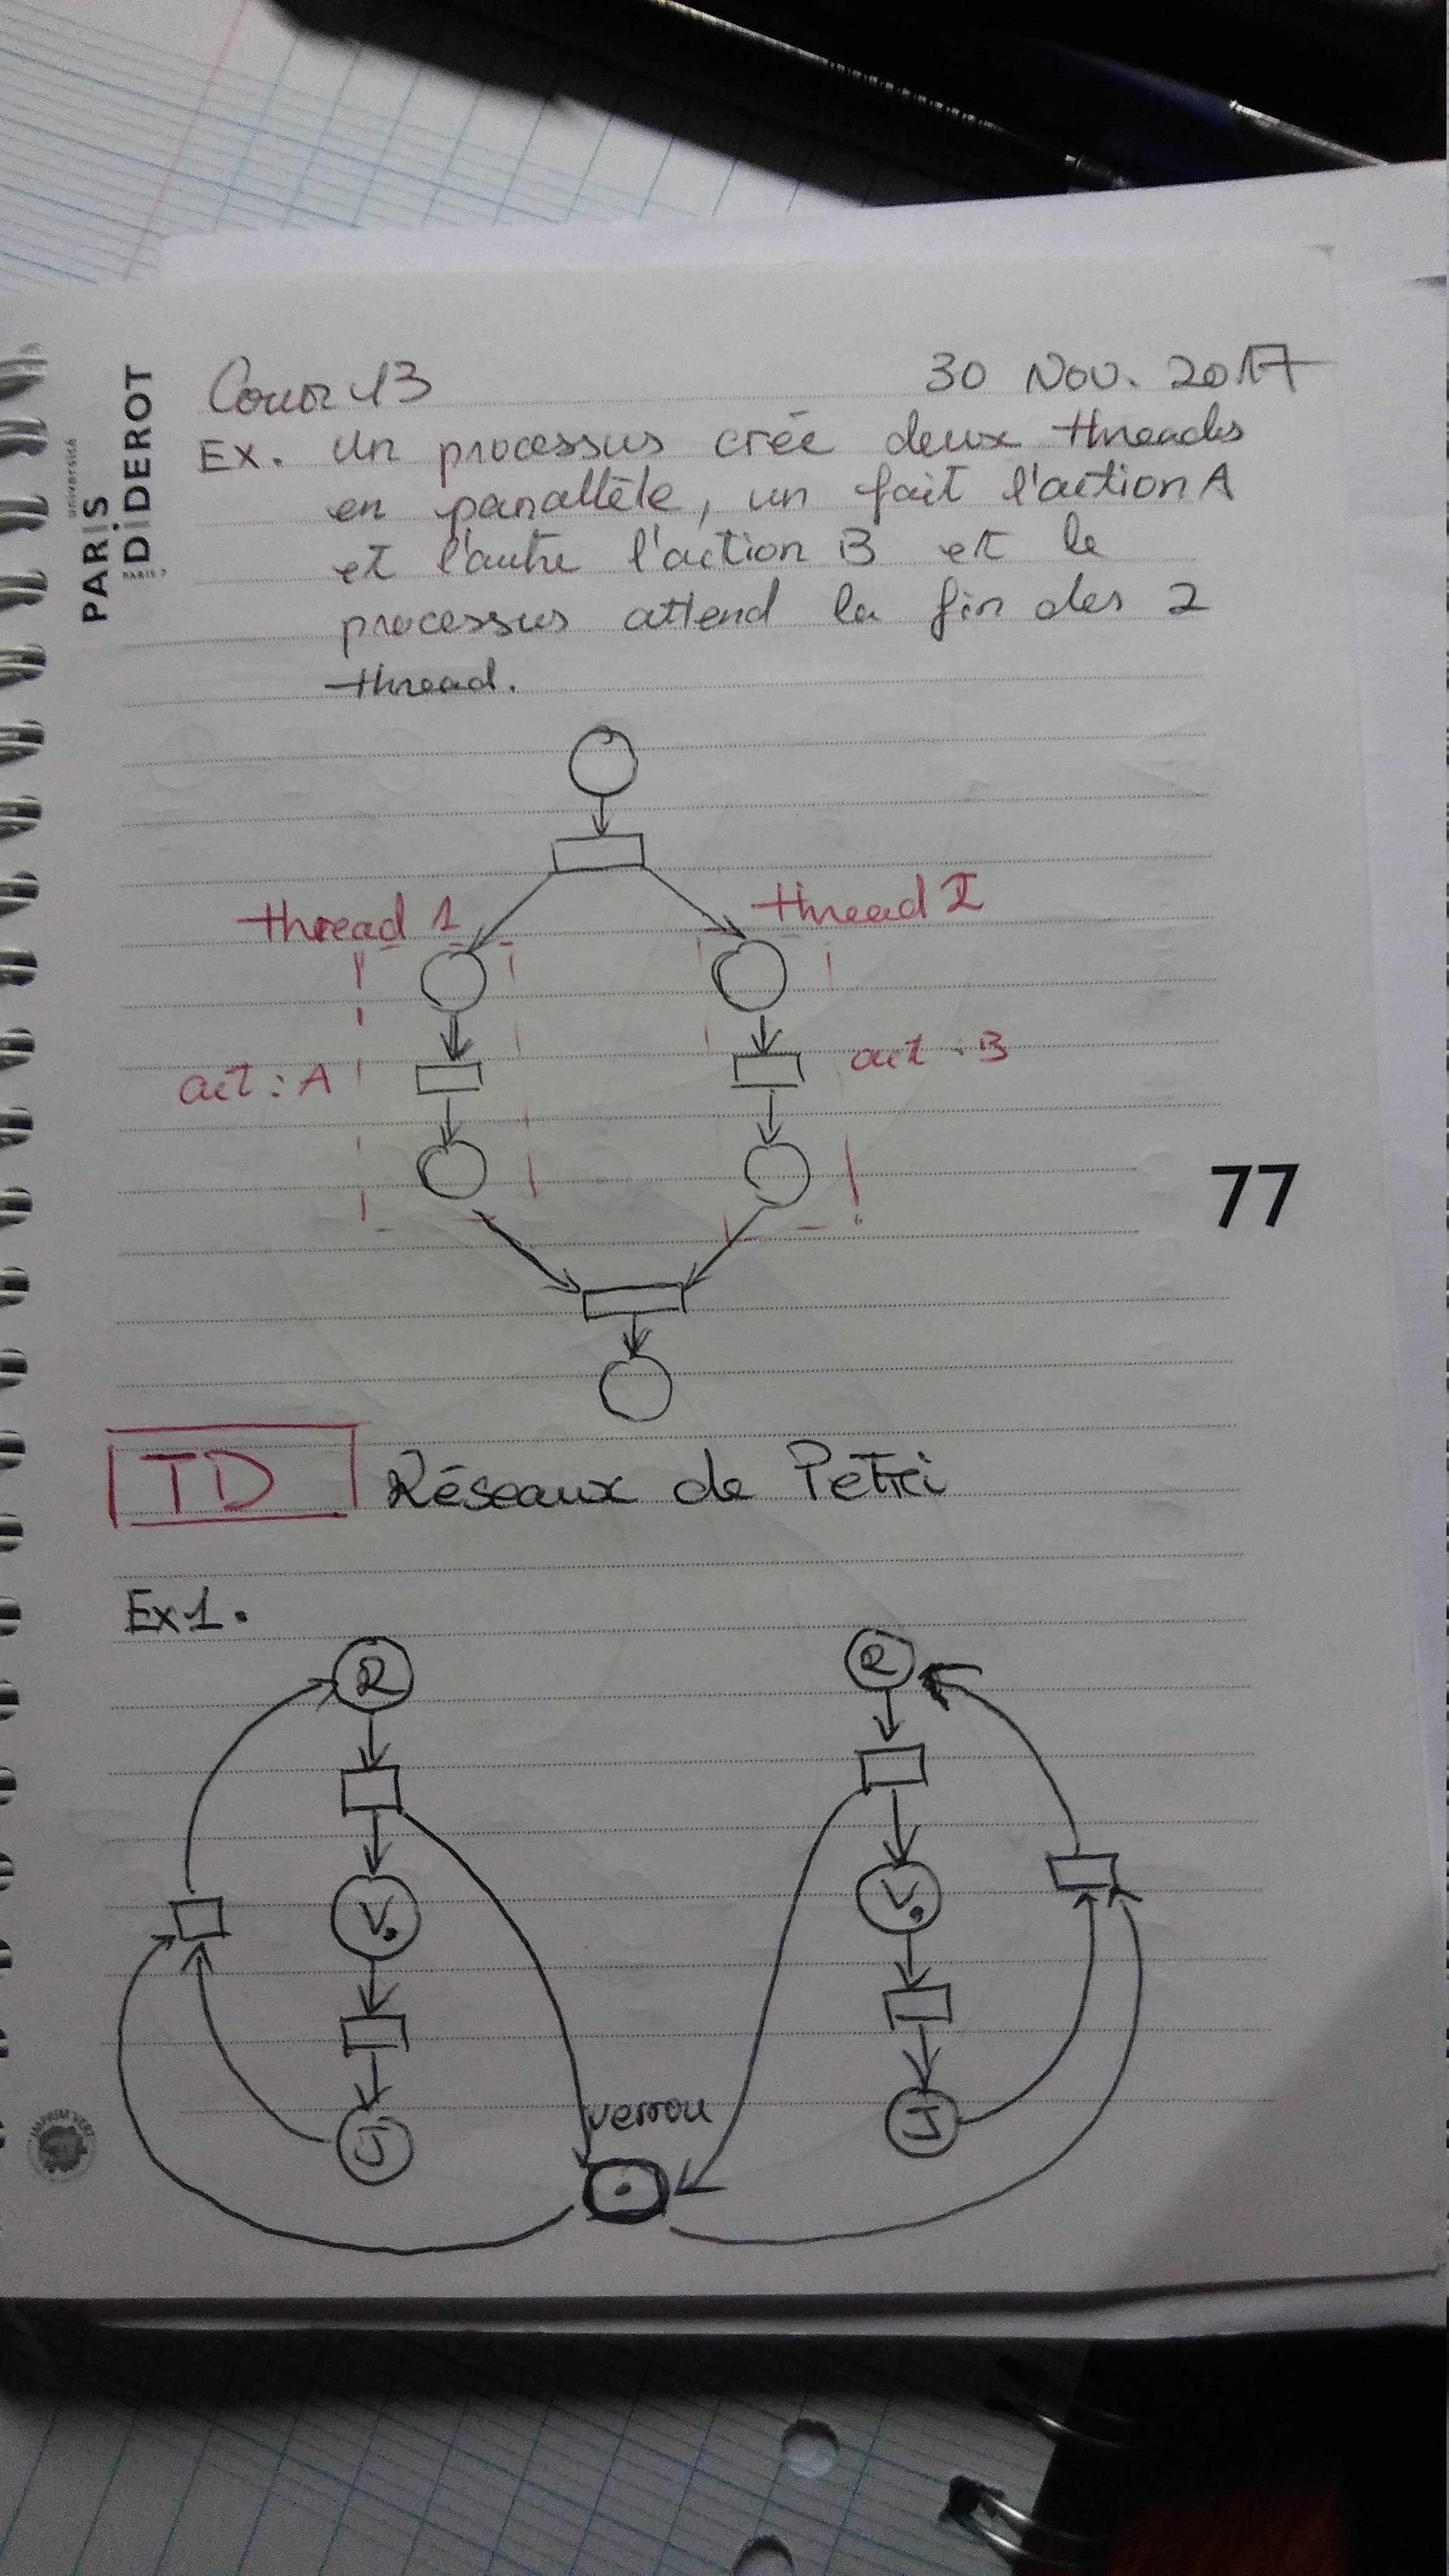 université
PARIS
DIDEROT
PARIS 7
Cour 13
30 Nov. 2017
Ex. un processus crée deux threads
en parallèle, un fait l'action A
et l'autre l'action B et le
processus attend la fin des 2
thread.
thread 1
thread 2
act : A
act : B
77
TD Réseaux de Petri
Ex1.
R
R
V
V
verrou
J
J
IMPRIM'VERT